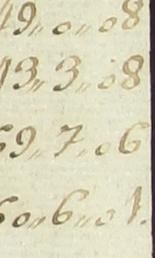 49,, 0,, 08
43,, 3,, 08
59,, 7,, 06
50,, 6,, 01.